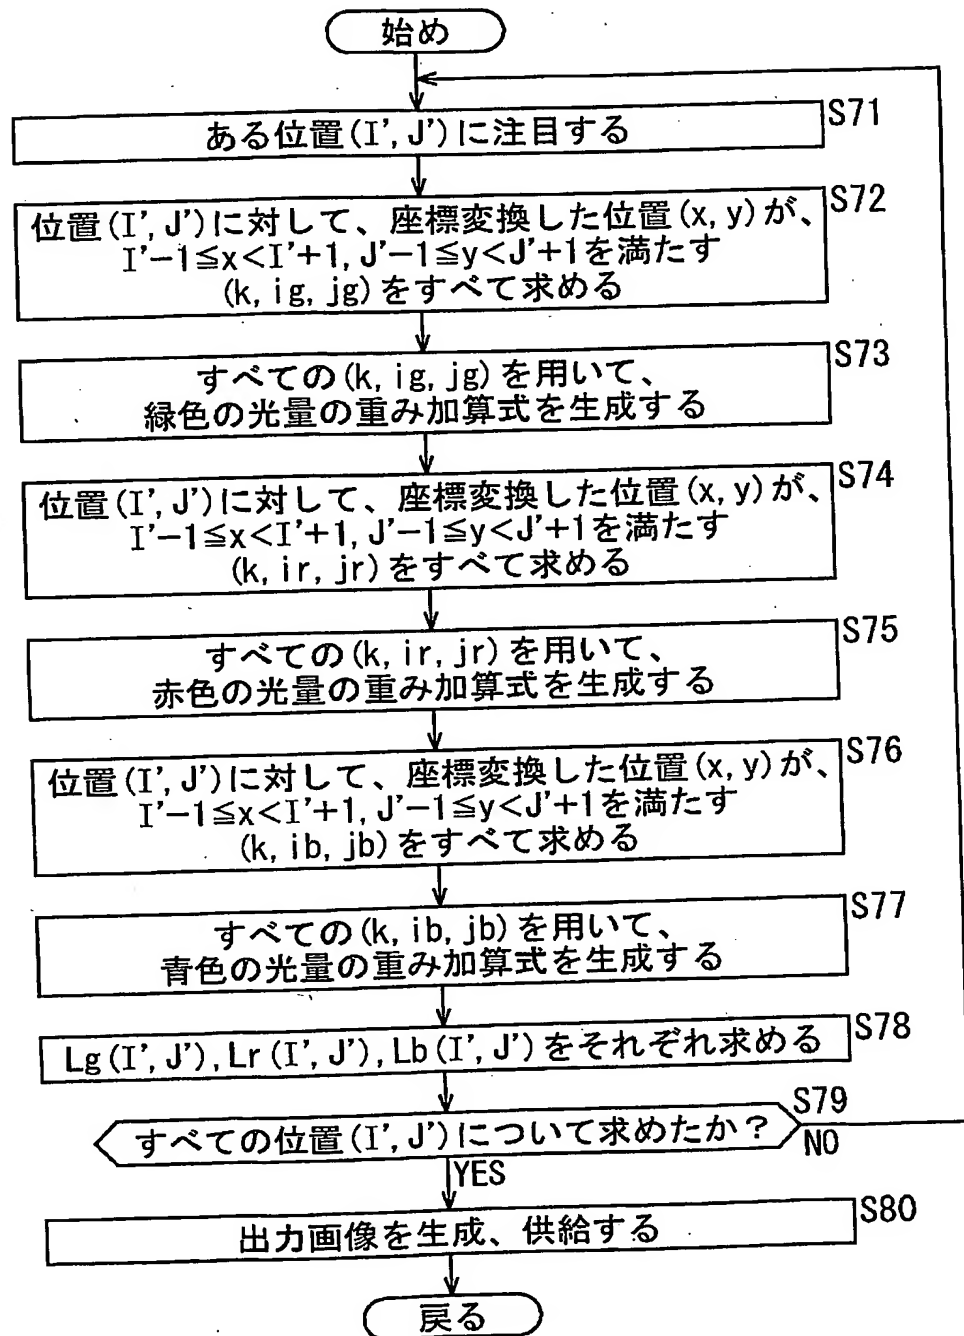 始め
ある位置(I', J')に注目する
S71
位置(I', J')に対して、座標変換した位置(x, y)が、
I'-1≦x<I'+1, J'-1≦y<J'+1を満たす
(k, ig, jg)をすべて求める
S72
すべての(k, ig, jg)を用いて、
緑色の光量の重み加算式を生成する
S73
位置(I', J')に対して、座標変換した位置(x, y)が、
I'-1≦x<I'+1, J'-1≦y<J'+1を満たす
(k, ir, jr)をすべて求める
S74
すべての(k, ir, jr)を用いて、
赤色の光量の重み加算式を生成する
S75
位置(I', J')に対して、座標変換した位置(x, y)が、
I'-1≦x<I'+1, J'-1≦y<J'+1を満たす
(k, ib, jb)をすべて求める
S76
すべての(k, ib, jb)を用いて、
青色の光量の重み加算式を生成する
S77
Lg(I', J'), Lr(I', J'), Lb(I', J')をそれぞれ求める
S78
すべての位置(I', J')について求めたか？
S79
NO
YES
出力画像を生成、供給する
S80
戻る